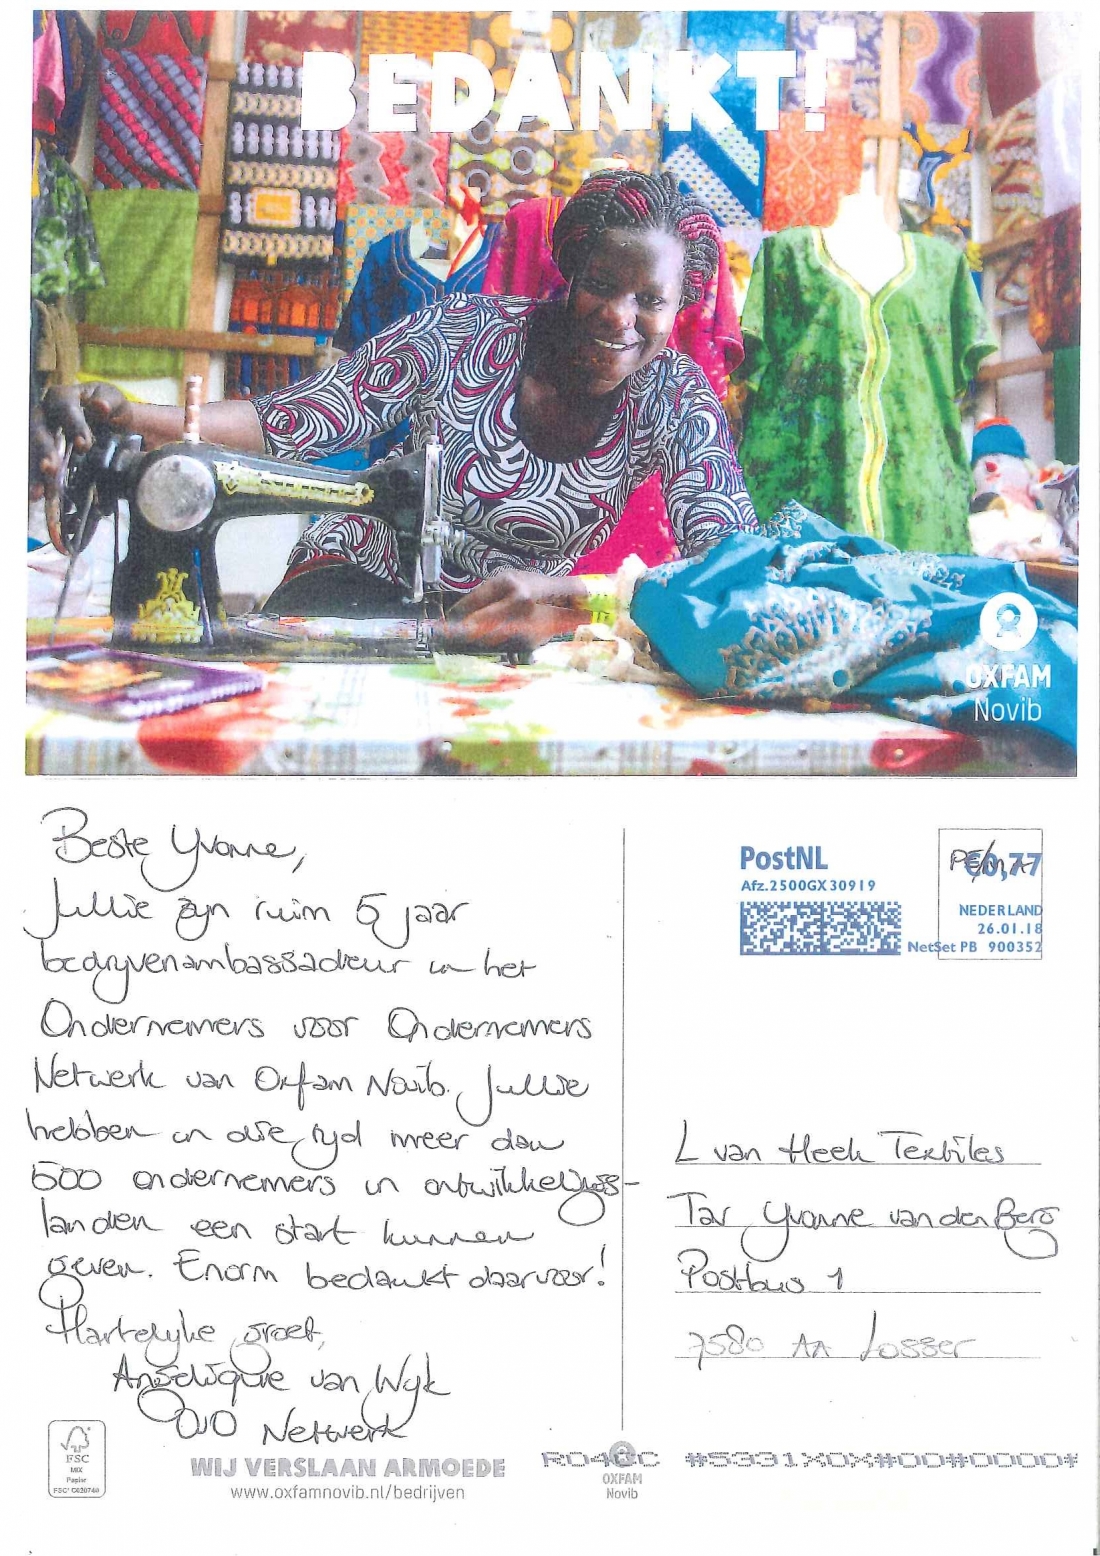 BEDANKT!
OXFAM
Novib
Beste Yvonne,
Jullie zijn ruim 5 jaar
bedrijvenambassadeur in het
Ondernemers voor Ondernemers
Netwerk van Oxfam Novib. Jullie
hebben in die tijd meer dan
500 ondernemers in ontwikkelings-
landen een start kunnen
geven. Enorm bedankt daarvoor!
Hartelijke groet,
Angelique van Wijk
OVO Netwerk
FSC
MIX
Papier
WIJ VERSLAAN ARMOEDE
www.oxfamnovib.nl/bedrijven
OXFAM
Novib
PostNL
Afz.2500GX30919
€0,77
NEDERLAND
26.01.18
NetSet PB 900352
L van Heek Textiles
Tav Yvonne van den Berg
Postbus 1
7580 AA Losser
#5331X0X#00#0000#